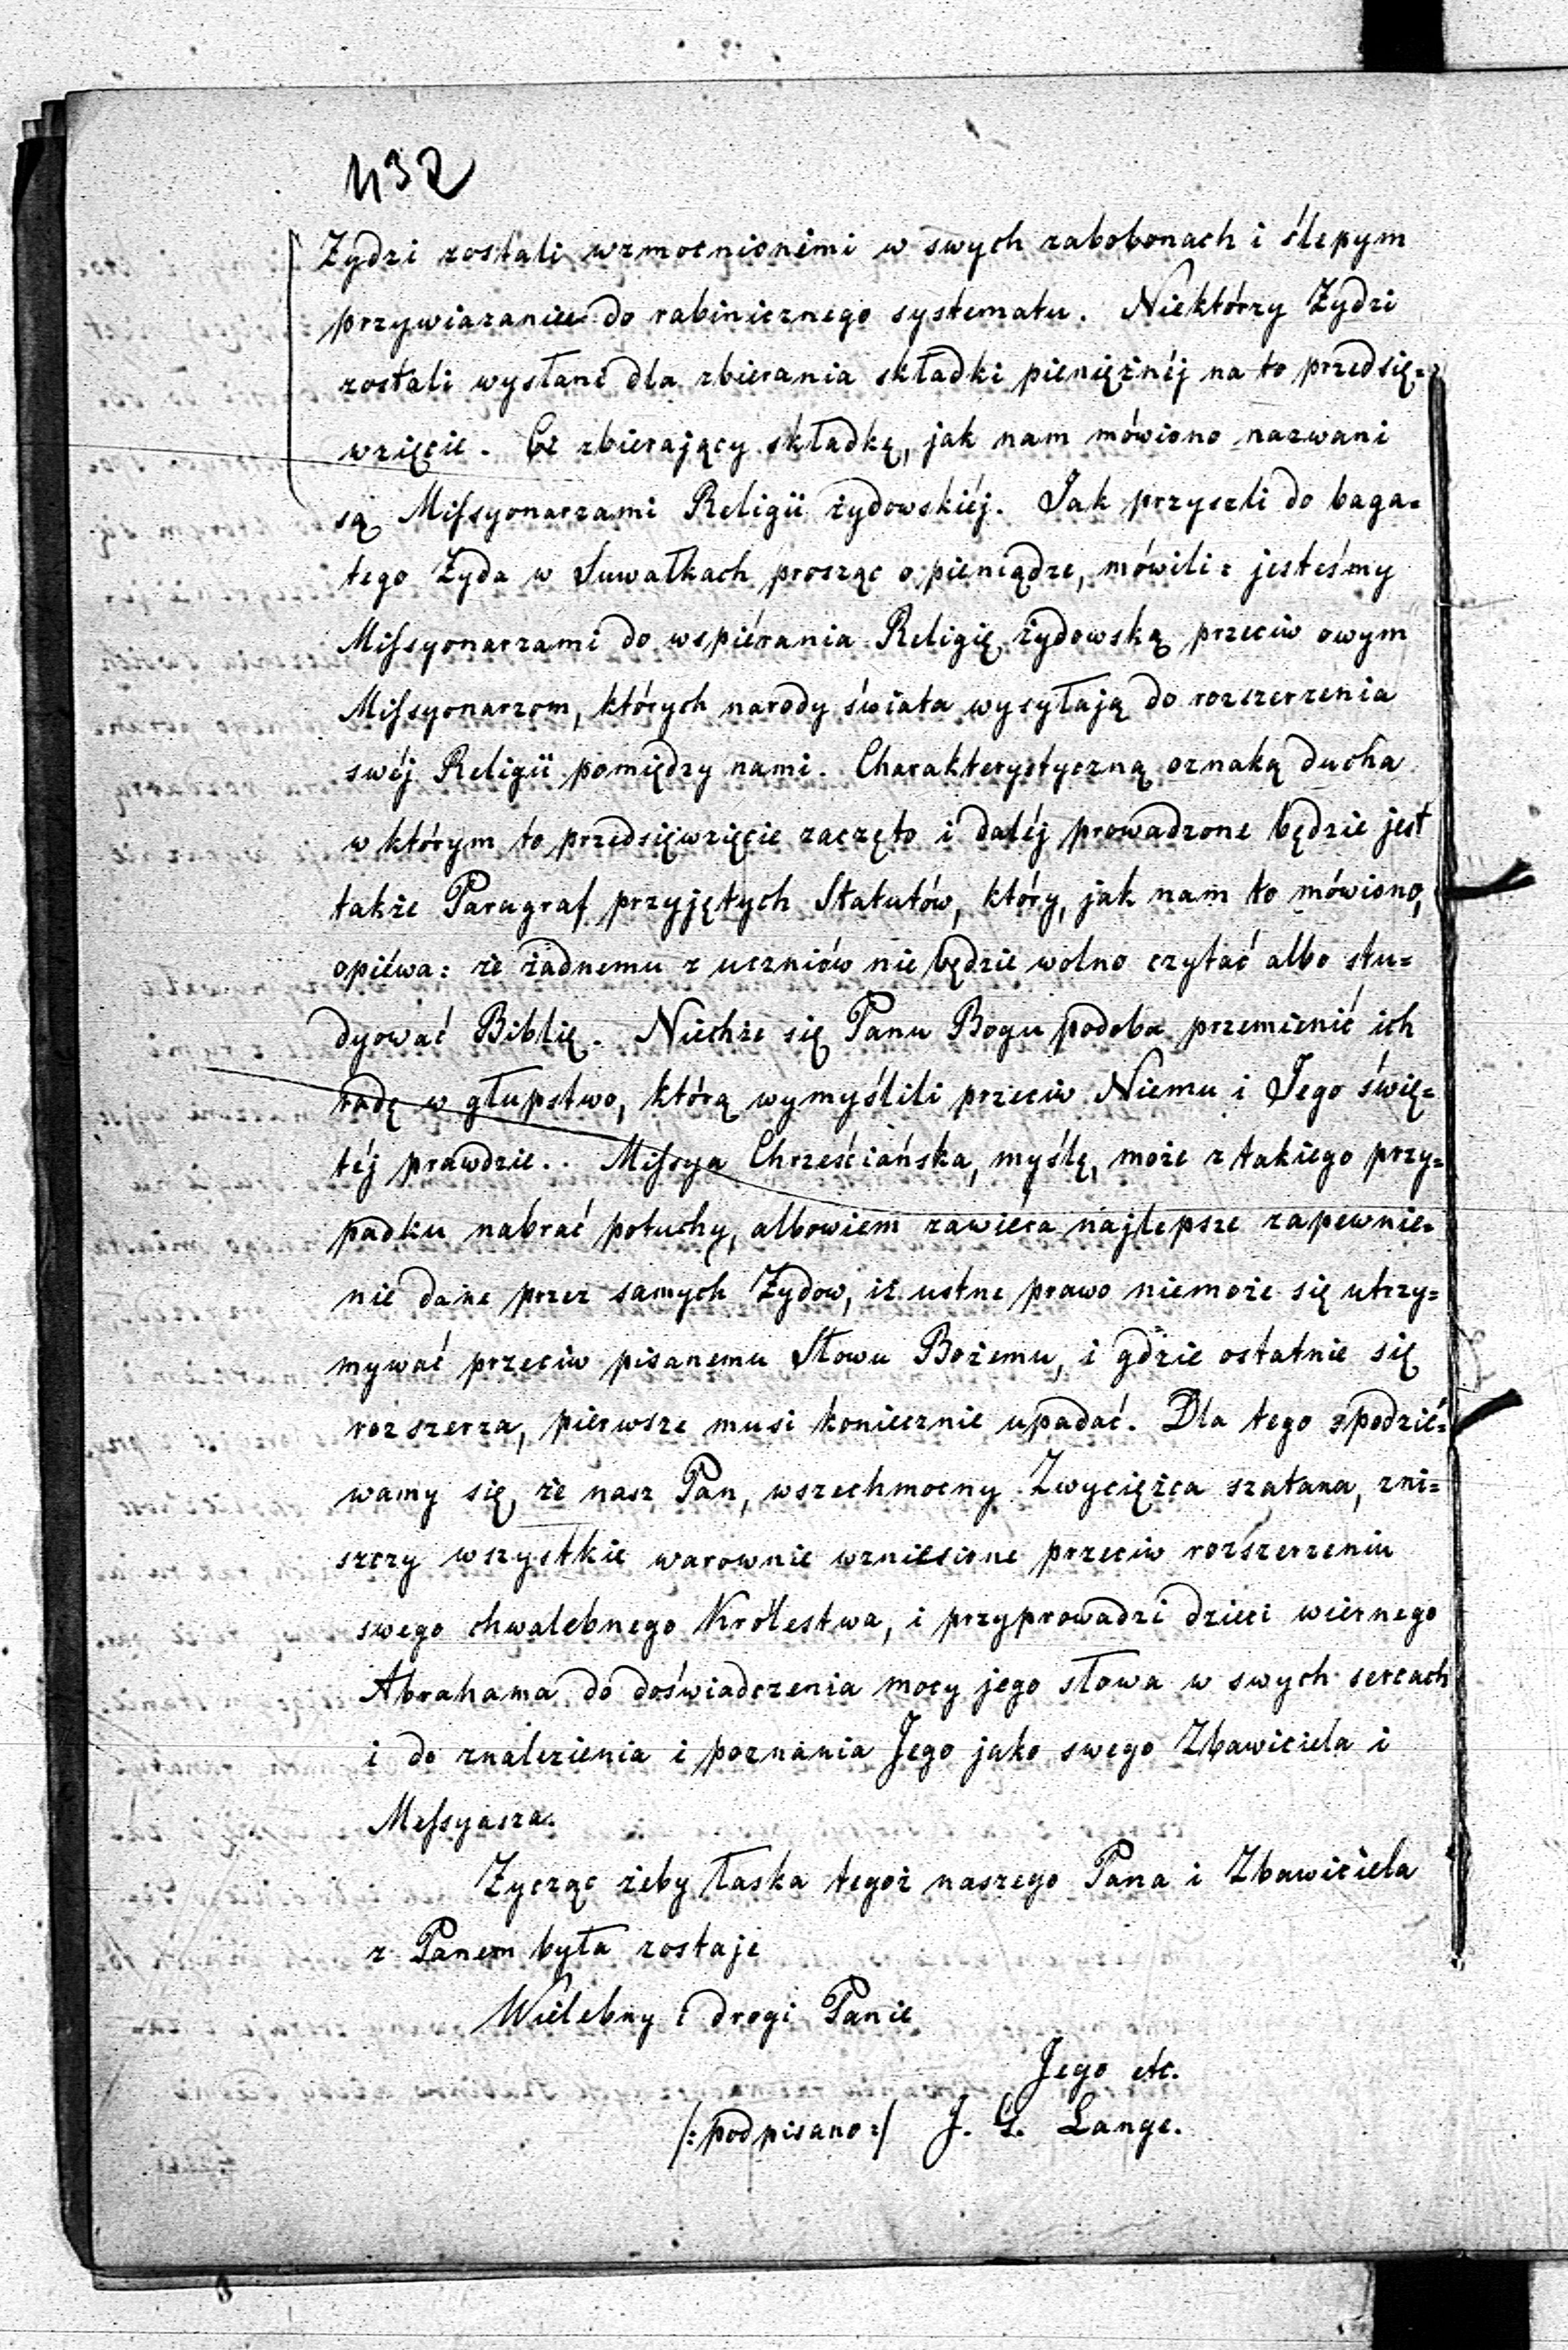 432
Żydzi zostali wzmocnionémi w swych zabobonach i ślepym
przywiazaniee do rabinicznego systematu. Niektórzy Żydzi
zostali wysłani dla zbierania składki pieniężnéj na to przedsię=
wzięcie. Ci zbierający składkę, jak nam mówiono nazwani
są Missyonarzami Religii żydowskiéj. Jak przyszli do baga=
tego Żyda w Suwałkach prosząc o pieniądze, mówili: jesteśmy
Missyonarzami do wspiérania Religię żydowską przeciw owym
Missyonarzom, których narody świata wysyłają do rozszerzenia
swéj Religii pomiędzy nami. Charakterystyczną oznaką ducha
w którym to przedsięwzięcie zaczęto i daléj prowadzone będzie jest
także Paragraf przyjętych Statutów, który, jak nam to mówiono,
opiéwa: że żadnemu z uczniów nie będzie wolno czytać albo stu=
dyować Biblię. Niechże się Panu Bogu podoba przemienić ich
radę w głupstwo, którą wymyślili przeciw Niemu i Jego świę=
téj prawdzie.. Missya Chrześciańska, myślę, może z takiego przy=
padku nabrać potuchy, albowiem zawiéra najlepsze zapewnie=
nie dane przez samych Żydow, iż ustne prawo niemoże się utrzy=
mywać przeciw pisanemu Słowu Bożemu, i gdzie ostatnie się
rozszerza, pierwsze musi koniecznie upadać. Dla tego spodzié=
wamy się, że nasz Pan, wszechmocny Zwyciężca szatana, zni=
szczy wszystkie warownie wzniesione przeciw rozszerzeniu
swego chwalebnego Królestwa, i przyprowadzi dzieci wiernego
Abrahama do doświadczenia mocy jego słowa w swych sercach
i do znalezienia i poznania Jego jako swego Zbawiciela i
Messyasza.
Życząc żeby łaska tegoż naszego Pana i Zbawiciela
z Panem była zostaje
Wielebny i drogi Panie
Jego etc.
/:podpisano:/ J. G. Lange.